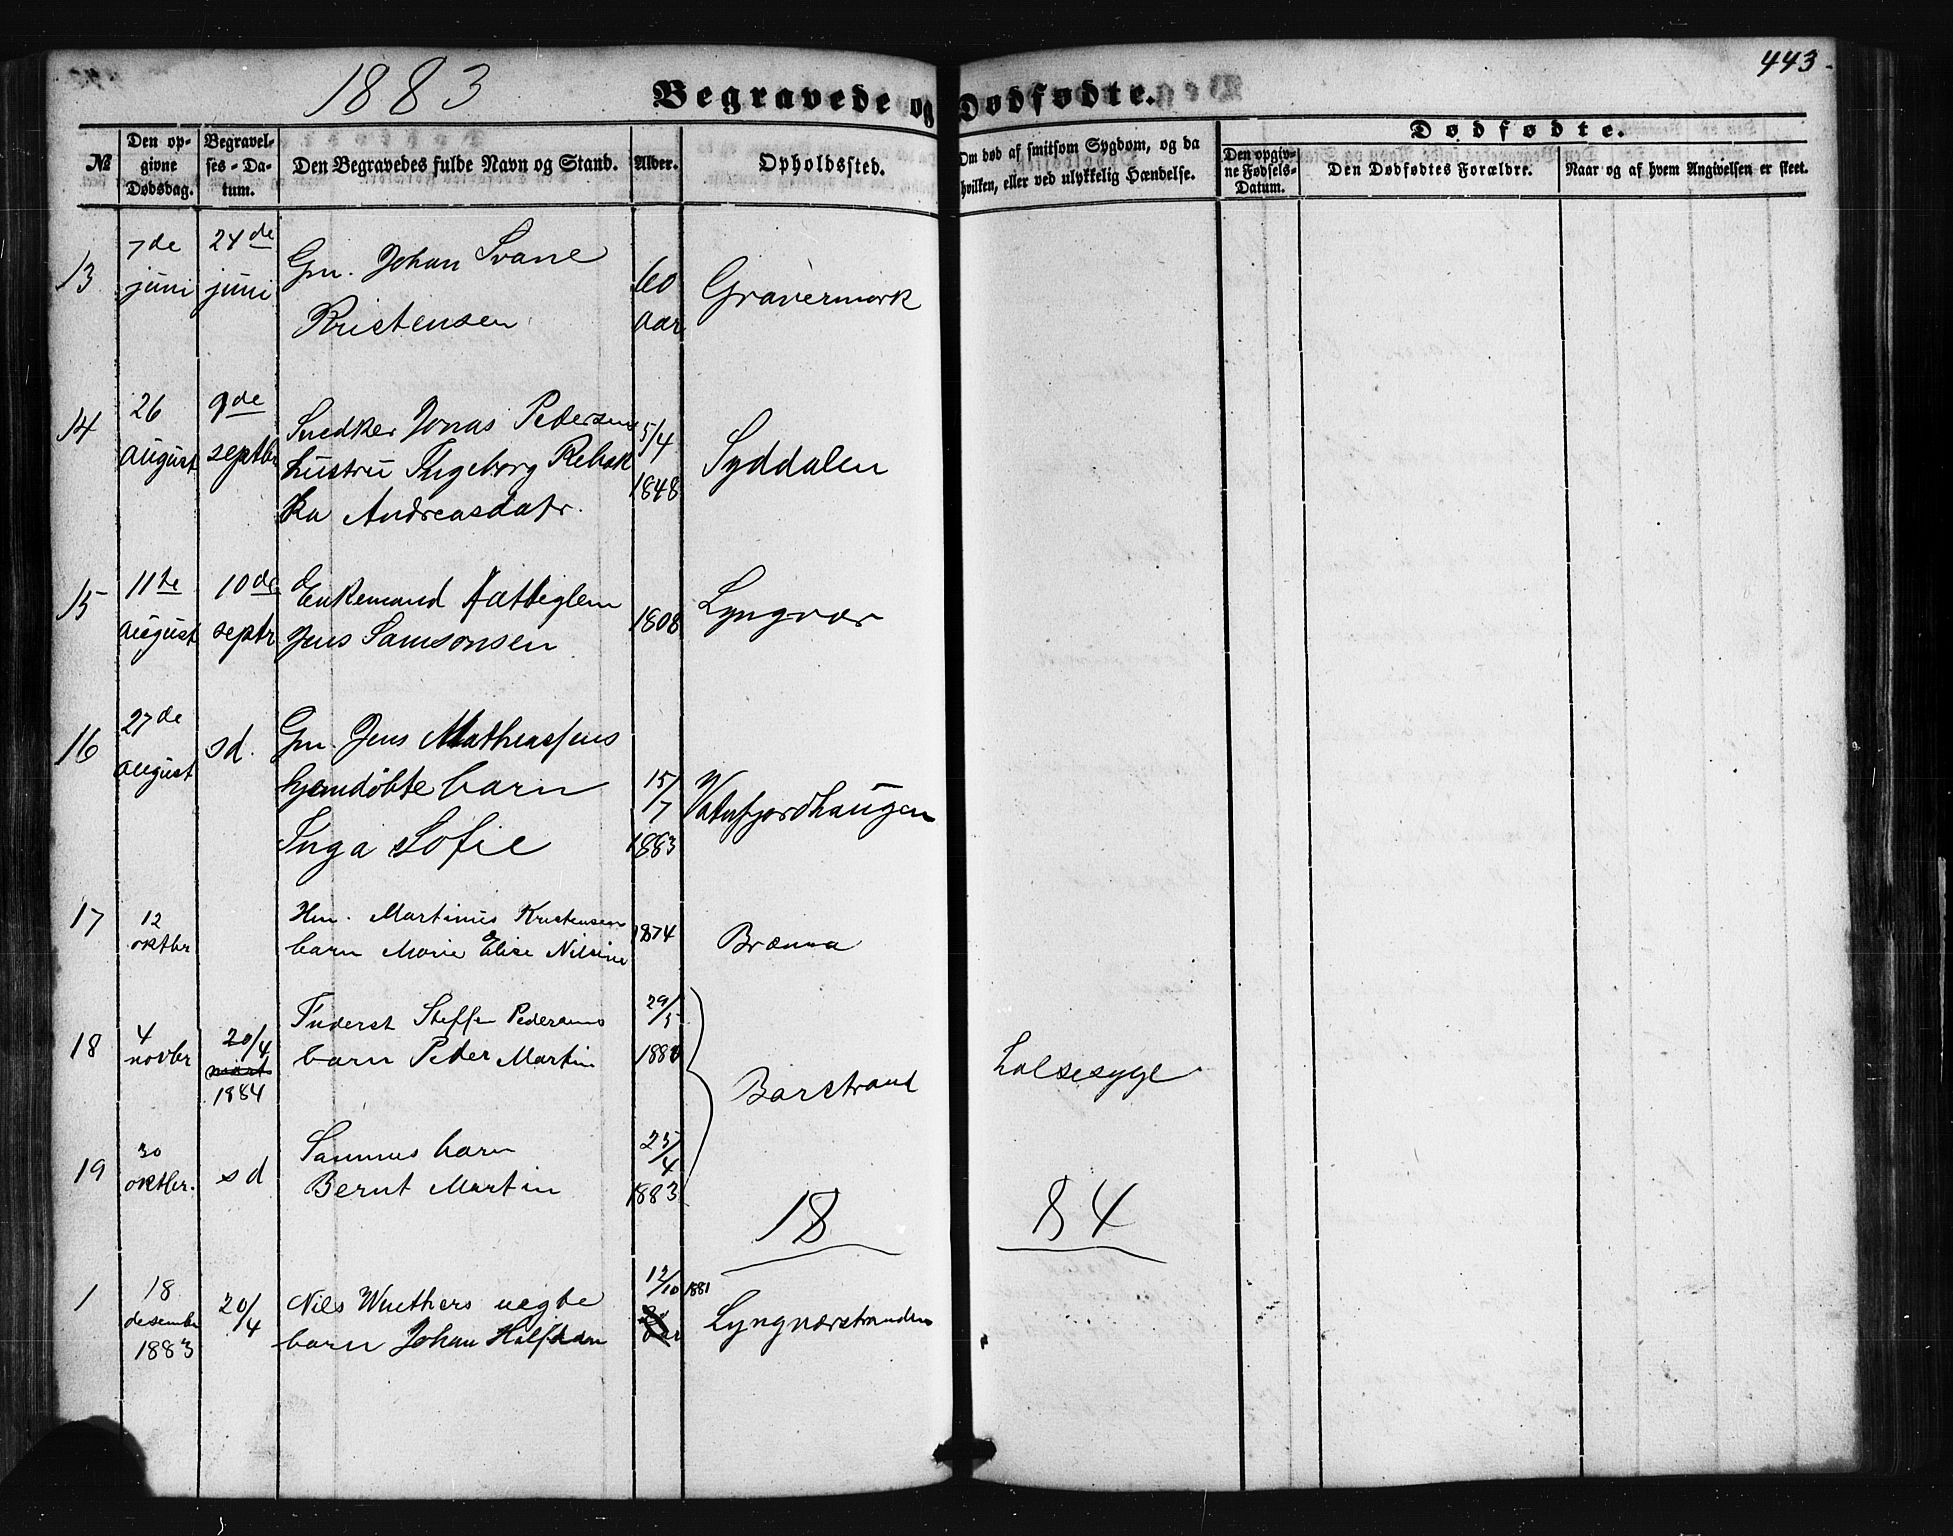 443.
1883
Begravede og Dødfødte.
№
Den op-
givne
Dødsdag.
Begravel-
ses-Da-
tum.
Den Begravedes fulde Navn og Stand.
Alder.
Opholdssted.
Om død af smitsom Sygdom, og da
hvilken, eller ved ulykkelig Hændelse.
Dødfødte.
Den opgiv-
ne Fødsels-
Datum.
Den Dødfødtes Forældre.
Naar og af hvem Angivelsen er skeet.
13
7de
juni
24de
juni
Gm. Johan Svane
Kristensen
60
aar
Gravermark
14
26
august
9de
septbr
Snedker Jonas Pedersens
hustru Ingeborg Rebek
ka Andreasdatr.
5/4
1848
Syddalen
15
11te
august
10de
septr
Enkemand Fattiglem
Jens Samsonsen
1808
Lyngvær
16
27de
august
sd.
Gm. Jens Mathiassens
hjemdøbte barn
Inga Sofie
15/7
1883
Vatnfjordhaugen
17
12
oktbr
Hm. Martinus Kristensens
barn Marie Elise Nilsine
1874
Brænna
18
4
novbr
20/4
1884
Inderst Steffen Pedersens
barn Peder Martin
29/5
Barstrand
Halsesyge
19
30
oktbr.
sd
Sammes barn
Bernt Martin
25/4
1883
18 84
1
18
desembr
1883
20/4
Nils Wuethers uegte
barn Johan Halfdan
12/10 1881
Lyngværstranden